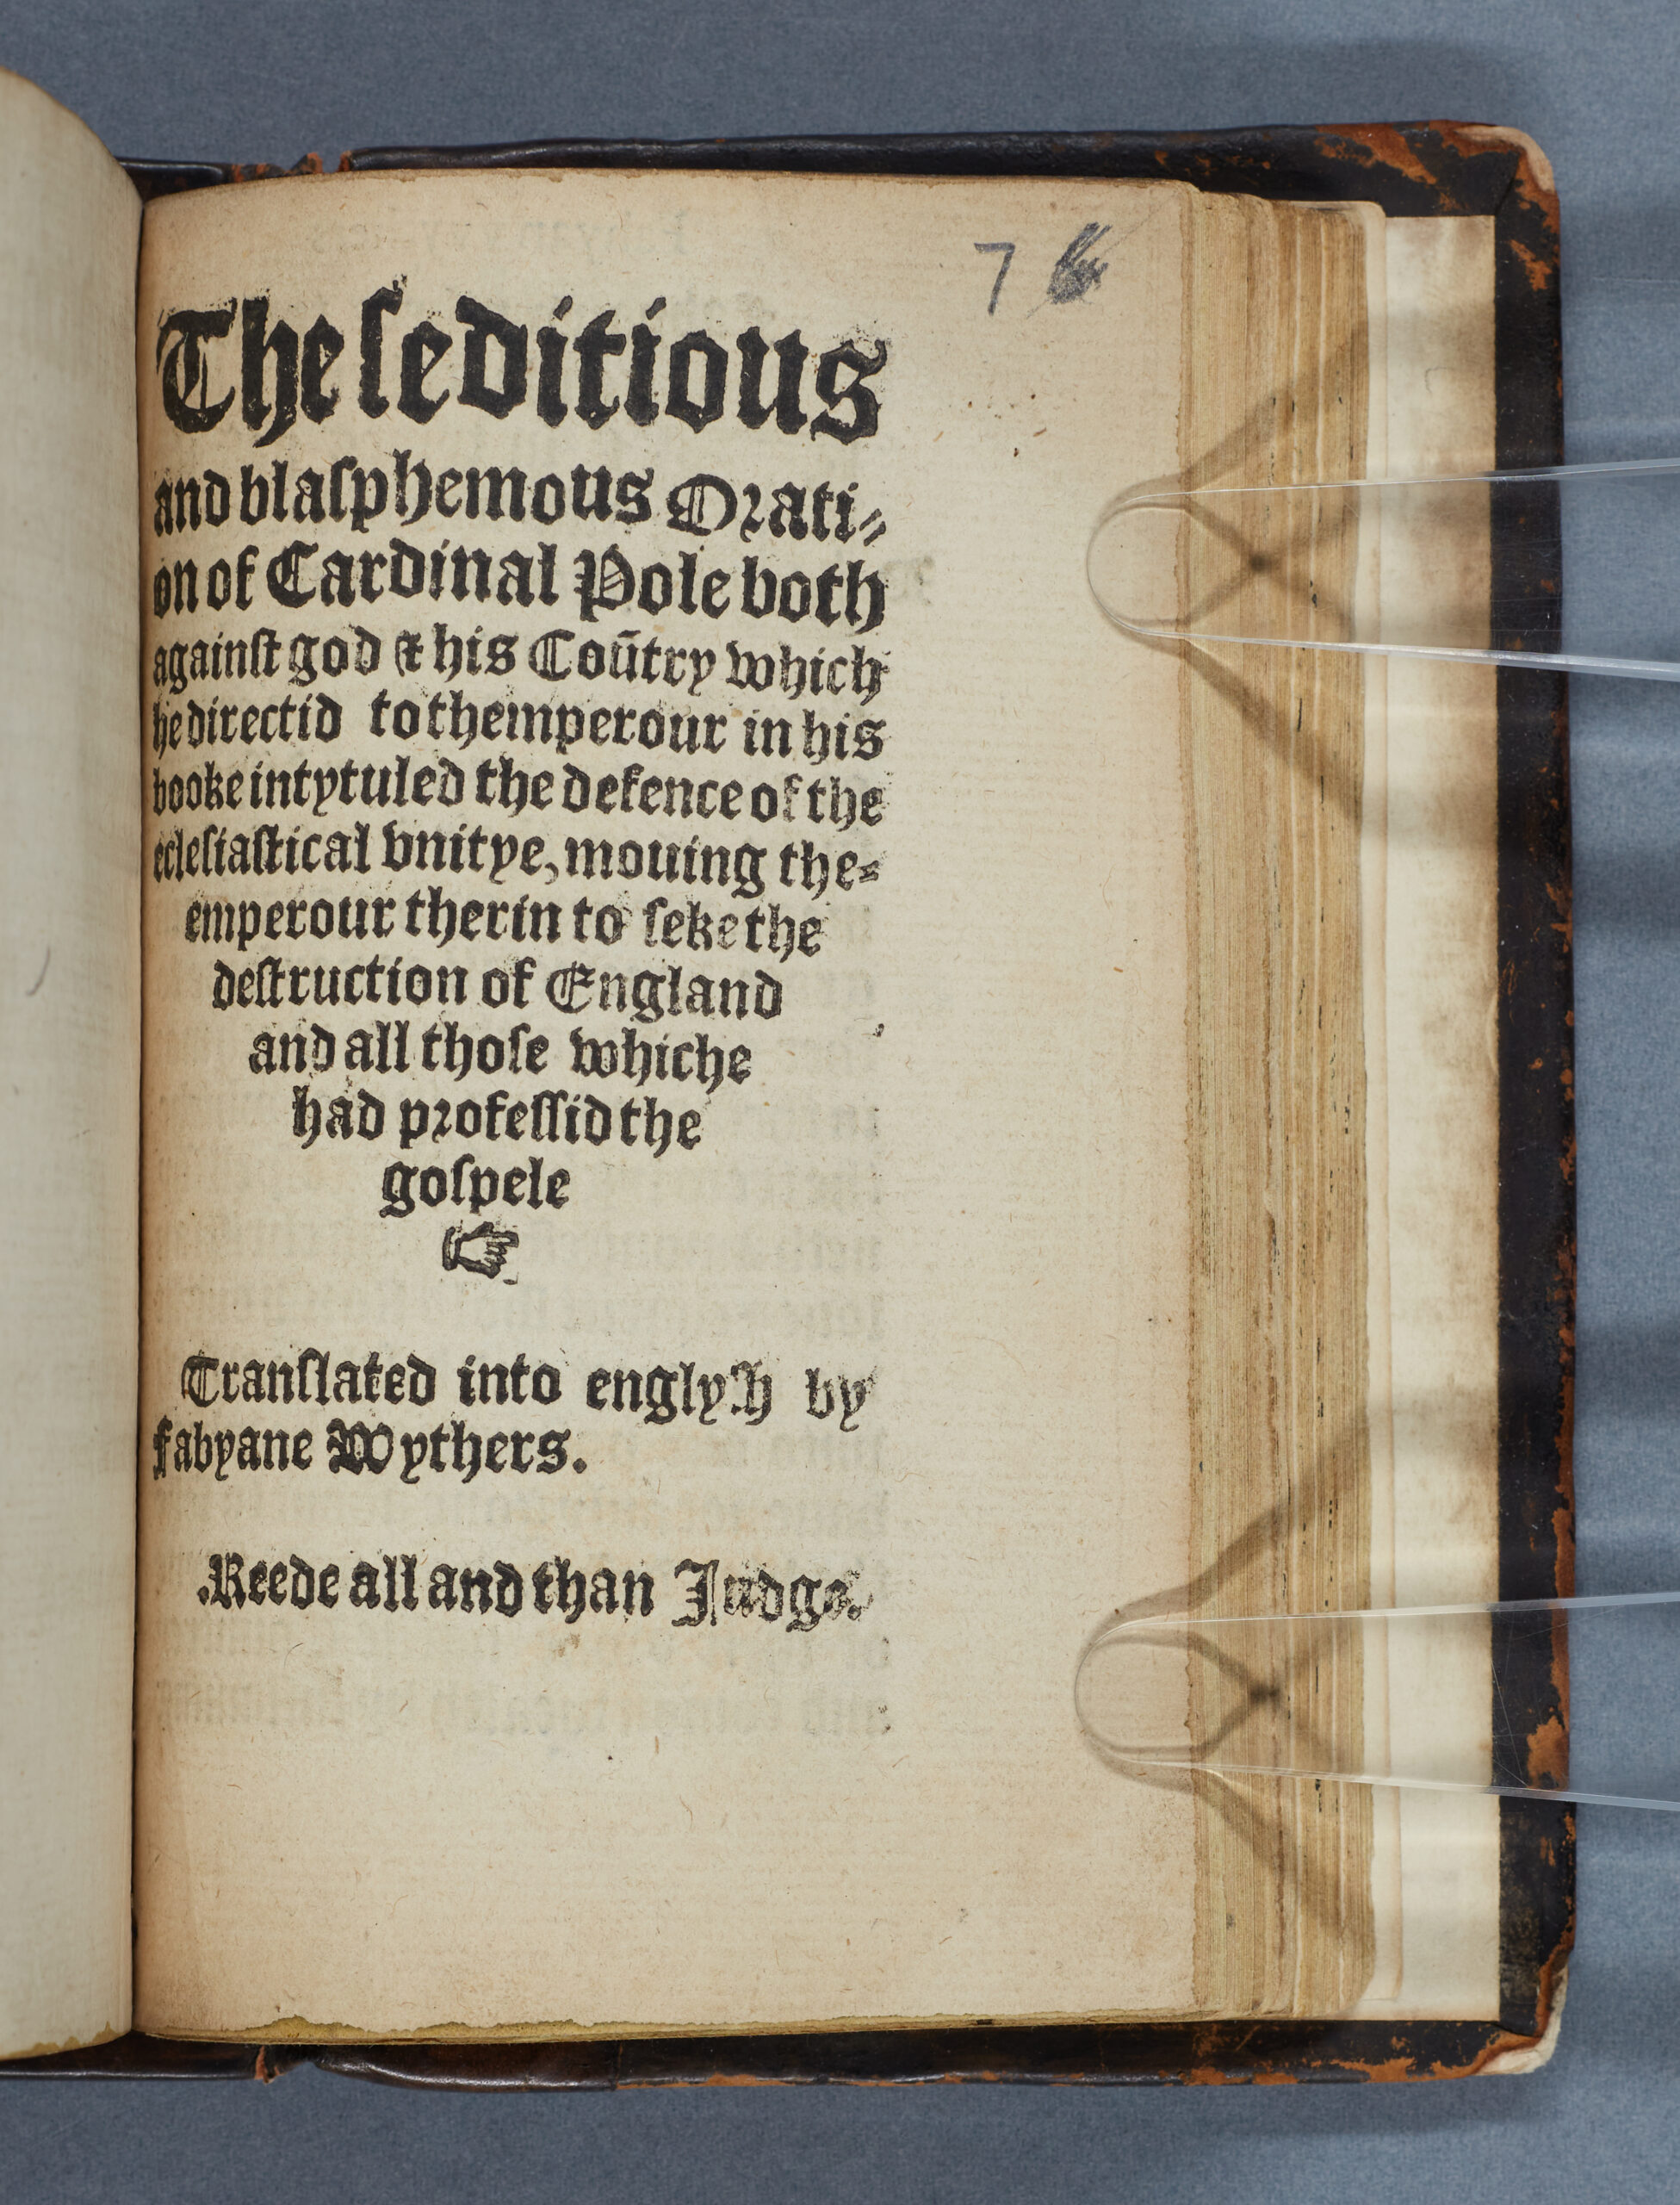 7
The ſeditious
and blaſphemous Orati⸗
on of Cardinal Pole both
againſt god & his Coūtry which
he directid to themperour in his
booke intytuled the defence of the
ecleſiaſtical vnitye, mouing the⸗
emperour therin to ſeke the
deſtruction of England
and all thoſe whiche
had profeſſid the
goſpele
☞
Tranſlated into englyſh by
fabyane Wythers.
Reede all and than Judge.